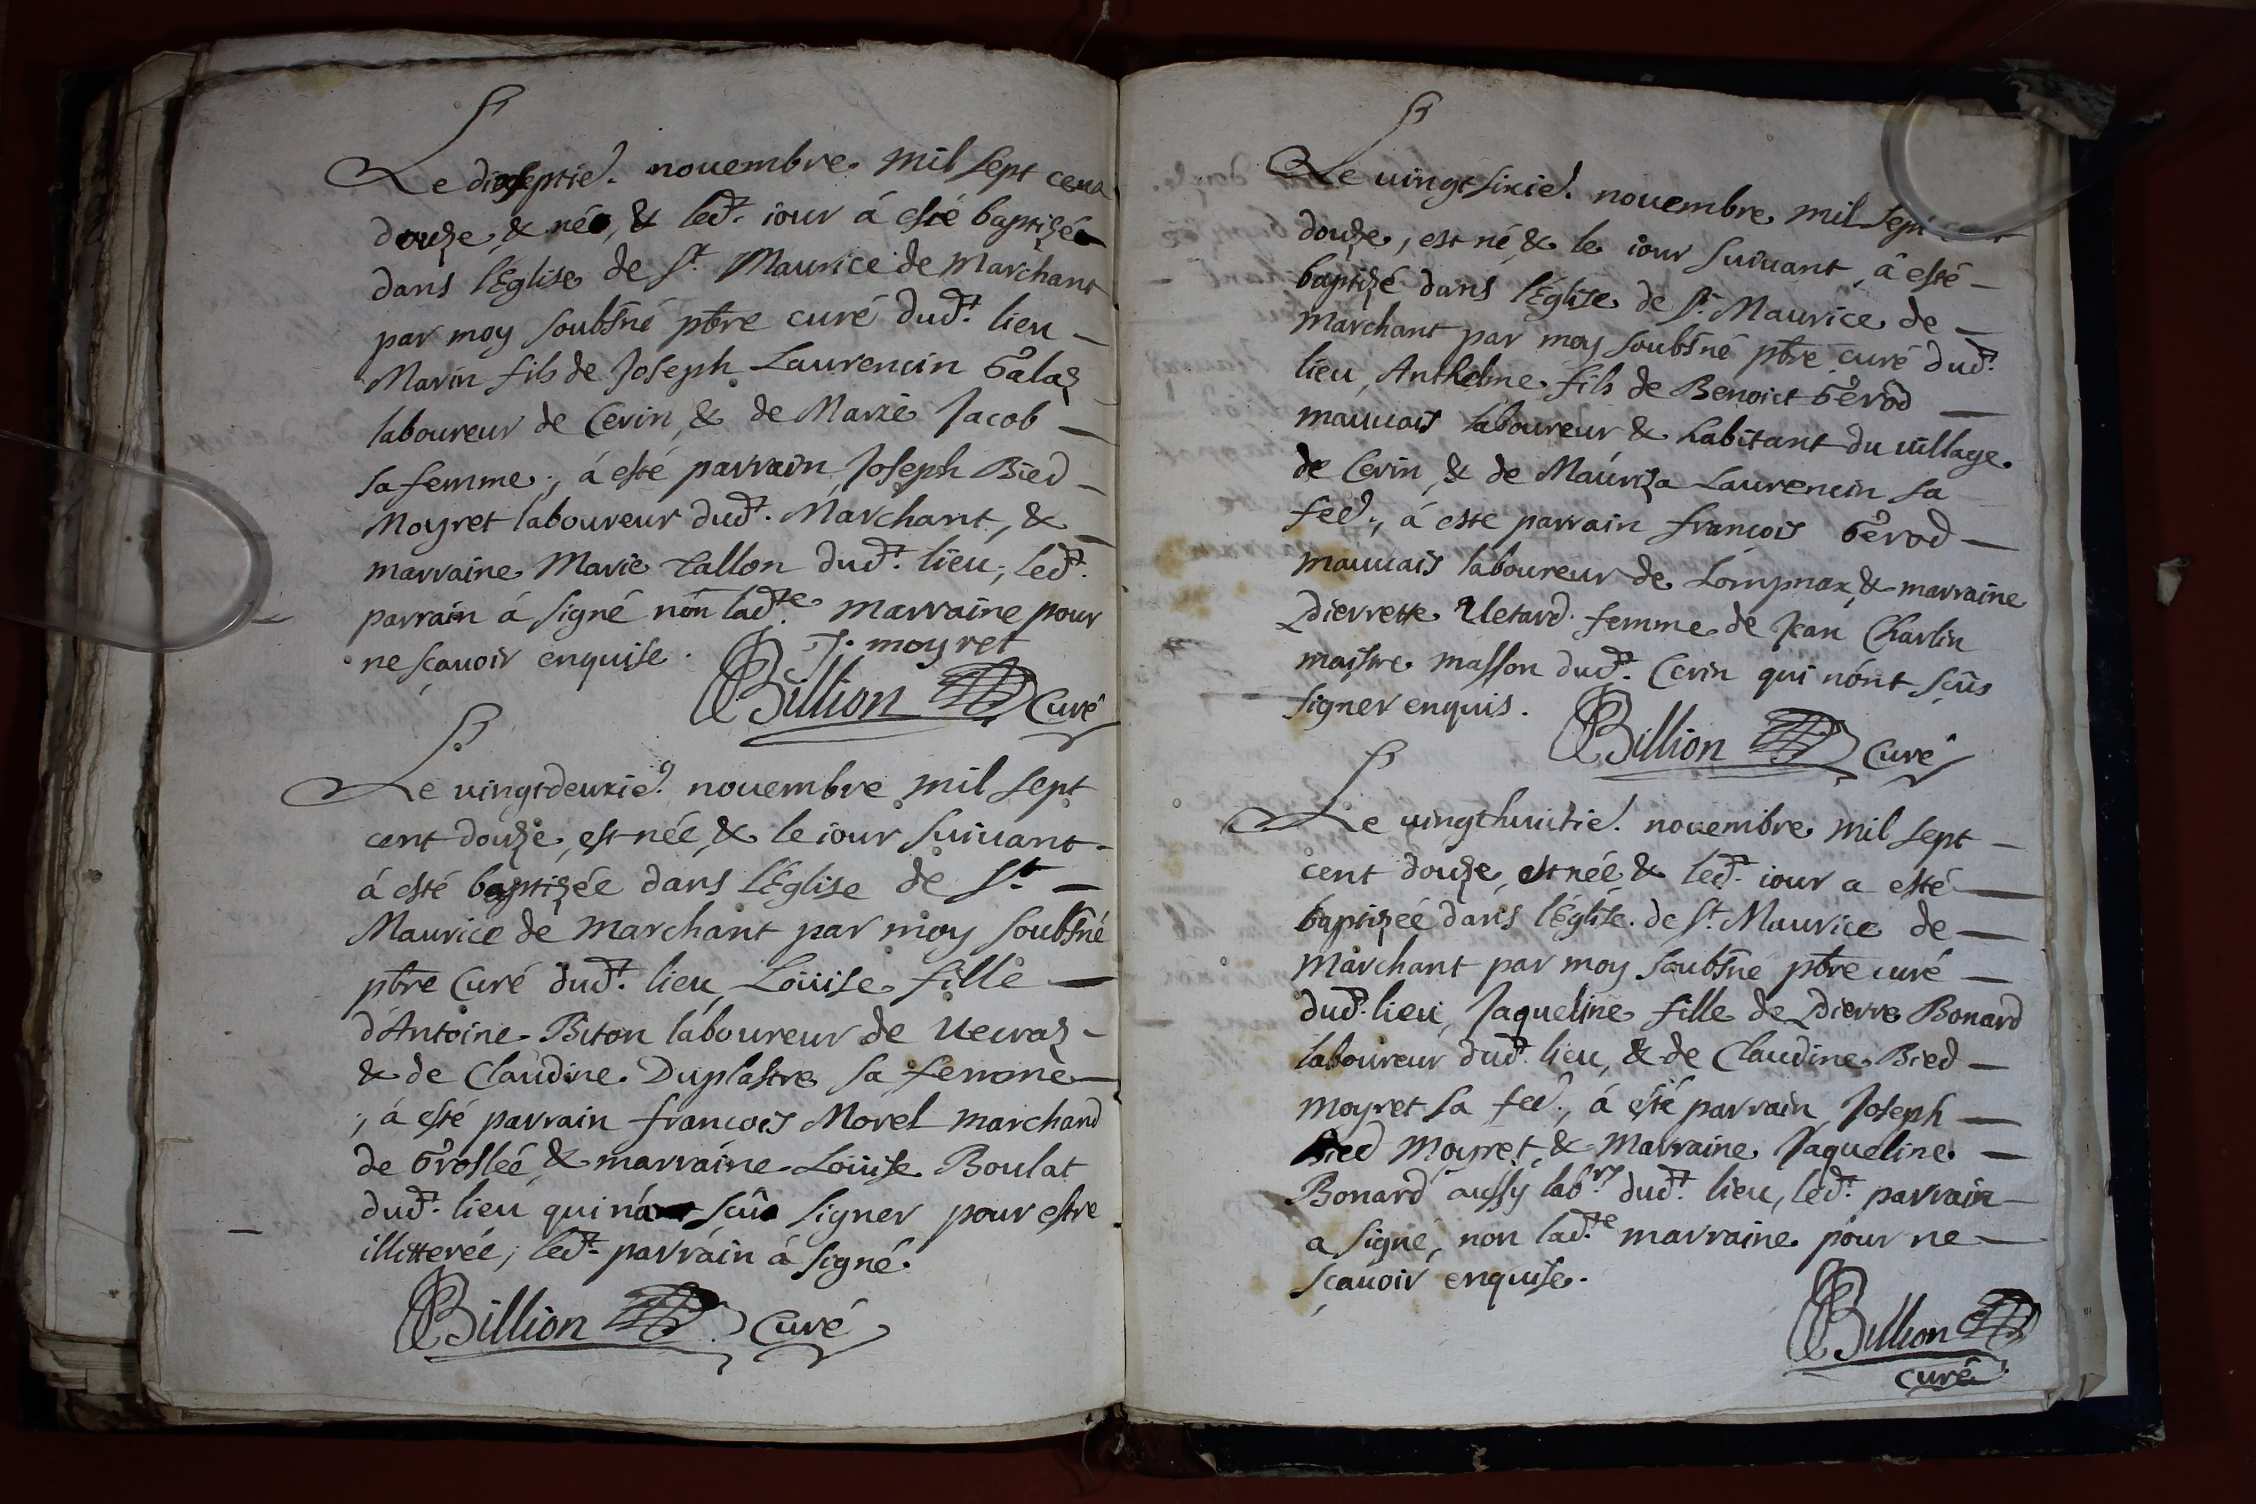 Le dixseptie. novembre mil sept cent
douze, & né, & led.t iour á esté baptizé
dans l'Eglise de St. Maurice de Marchant
par moy soubsné ptre curé dud.t lieu
Marin fils de Joseph Laurencin Galaz
laboureur de Cerin, & de Marie Jacob
sa femme; á esté parrain Joseph Bied
Moyret laboureur dud.t Marchant, &
marraine Marie Tallon dud.t lieu, led.t
parrain á signé non lad.te marraine pour
ne sçavoir enquise.
J. moyret
Billion Curé
Le vingtdeuxie. novembre mil sept
cent douze, est née, & le iour suivant
á esté baptizée dans l'Eglise de St.
Maurice de Marchant par moy soubsné
ptre Curé dud.t lieu, Loüise fille
d'Antoine Biton laboureur de Uecraz
& de Claudine Duplastre sa femme
; á esté parrain françois Morel marchand
de Groslée, & marraine Loüise Boulat
dud.t lieu qui n'a sçû signer pour estre
illitterée, led.t parrain á signé.
Billion Curé
Le vingtsixie. novembre mil sept cent
douze, est né, & le iour suivant, á esté
baptizé dans l'Eglise de St. Maurice de
Marchant par moy soubsné ptre curé dud.t
lieu, Anthelme fils de Benoict Gerod
mauvais laboureur & habitant du village
de Cerin, & de Mauriza Laurencin sa
fee., á este parrain françois Gerod
mauvais laboureur de Lompnax, & marraine
Pierrette Uetard femme de Jean Charlin
maistre masson dud.t Cerin qui n'ont sçûs
signer enquis.
Billion Curé
Le vingthuitie. novembre mil sept
cent douze, est née & led.t iour a esté
baptizée dans l'Eglise de St. Maurice de
Marchant par moy soubsné ptre curé
dud.t lieu, Jaqueline fille de Pierre Bonard
laboureur dud.t lieu, & de Claudine Bied
Moyret sa fee., á esté parrain Joseph
Bied Moyret, & Marraine Jaqueline
Bonard aussy labrs dud.t lieu, led.t parrain
a signé, non lad.te marraine pour ne
sçavoir enquise.
Billion
Curé